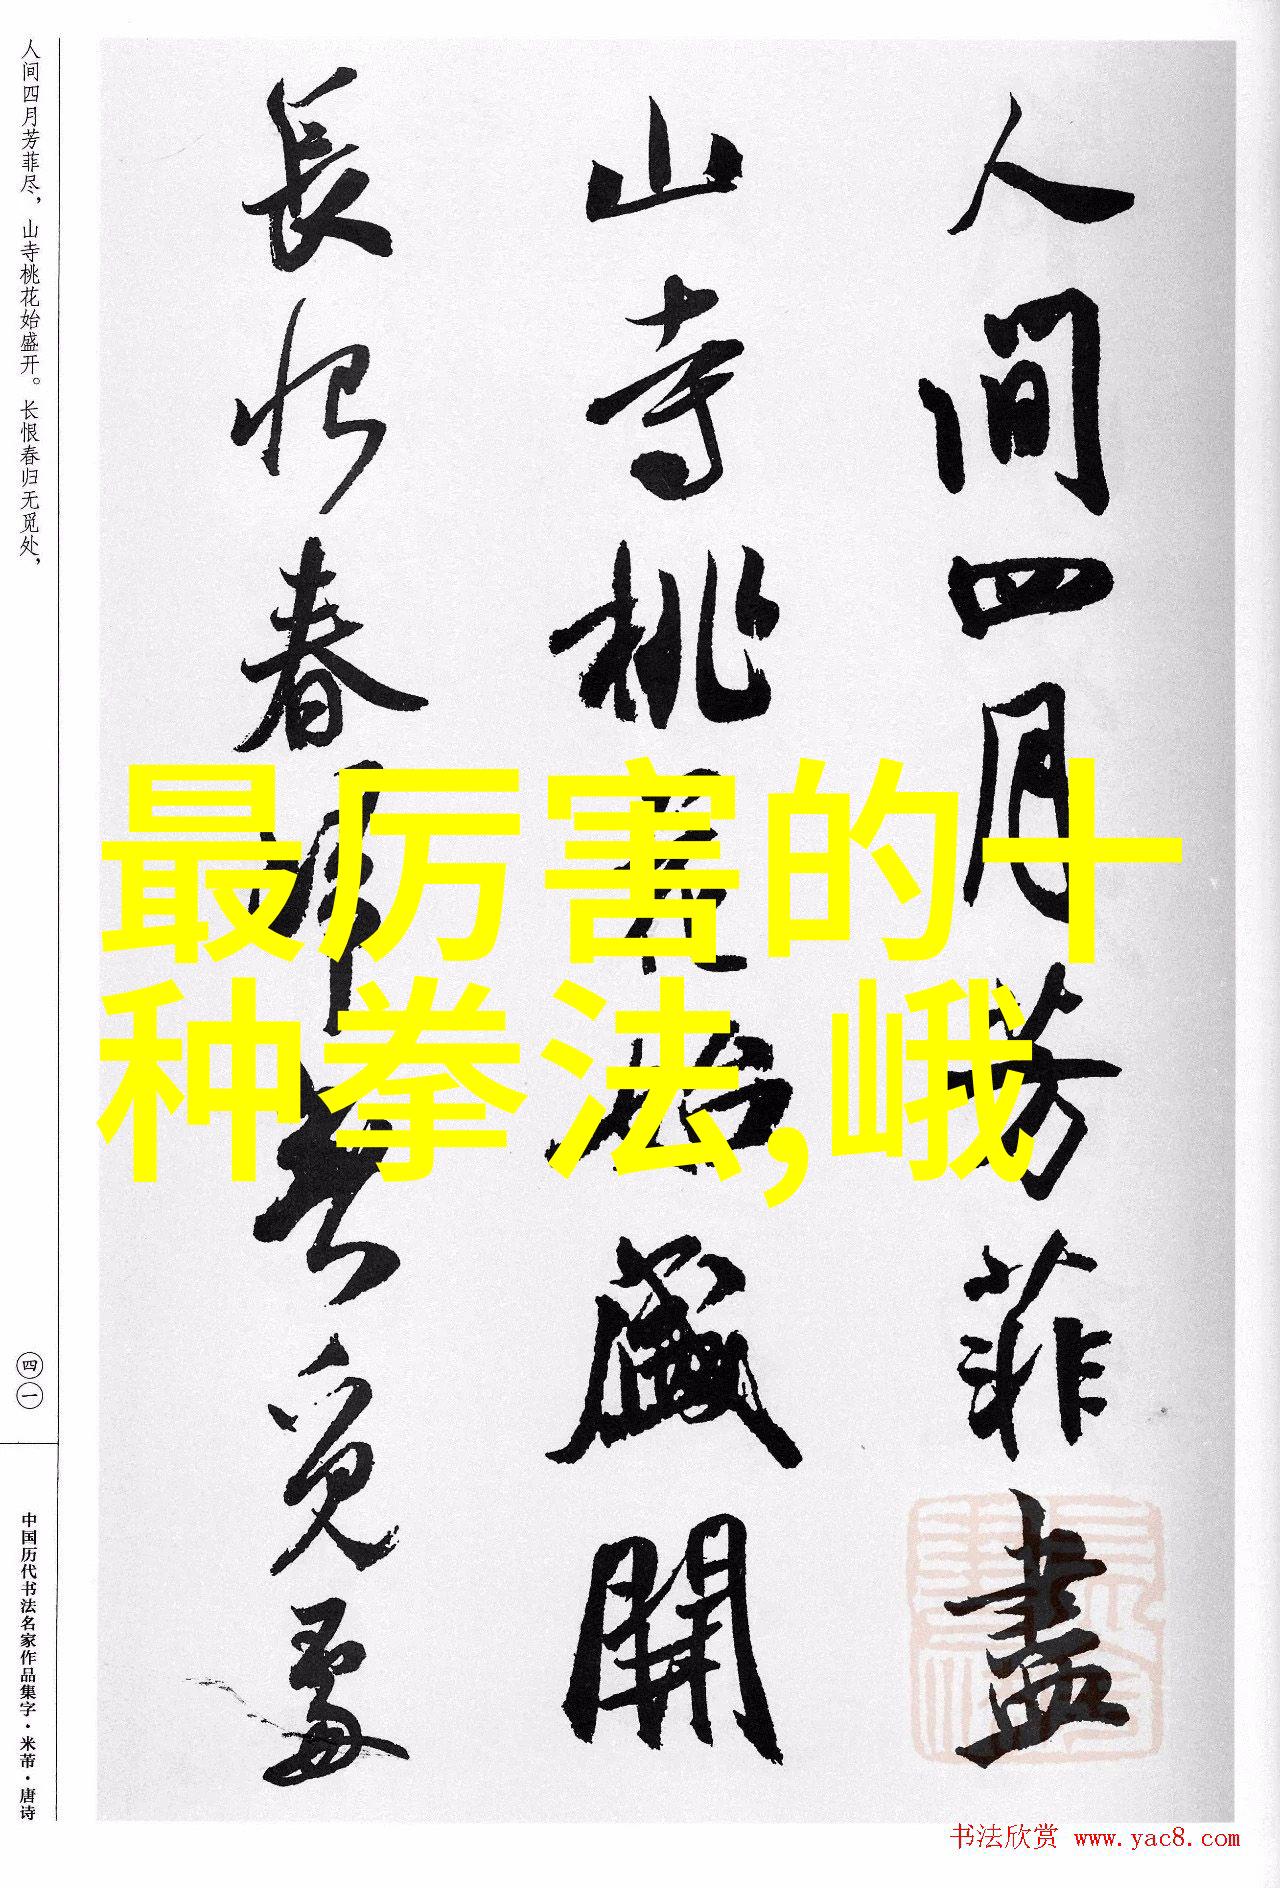 人間四月芳菲盡
山寺桃花始盛開
長恨春歸無覓處
最厉害的十
种拳法,峨
人间四月芳菲尽，山寺桃花始盛开。长恨春归无觅处，
四一
中国历代书法名家作品集字·米芾·唐诗
书法欣赏 www.yac8.com